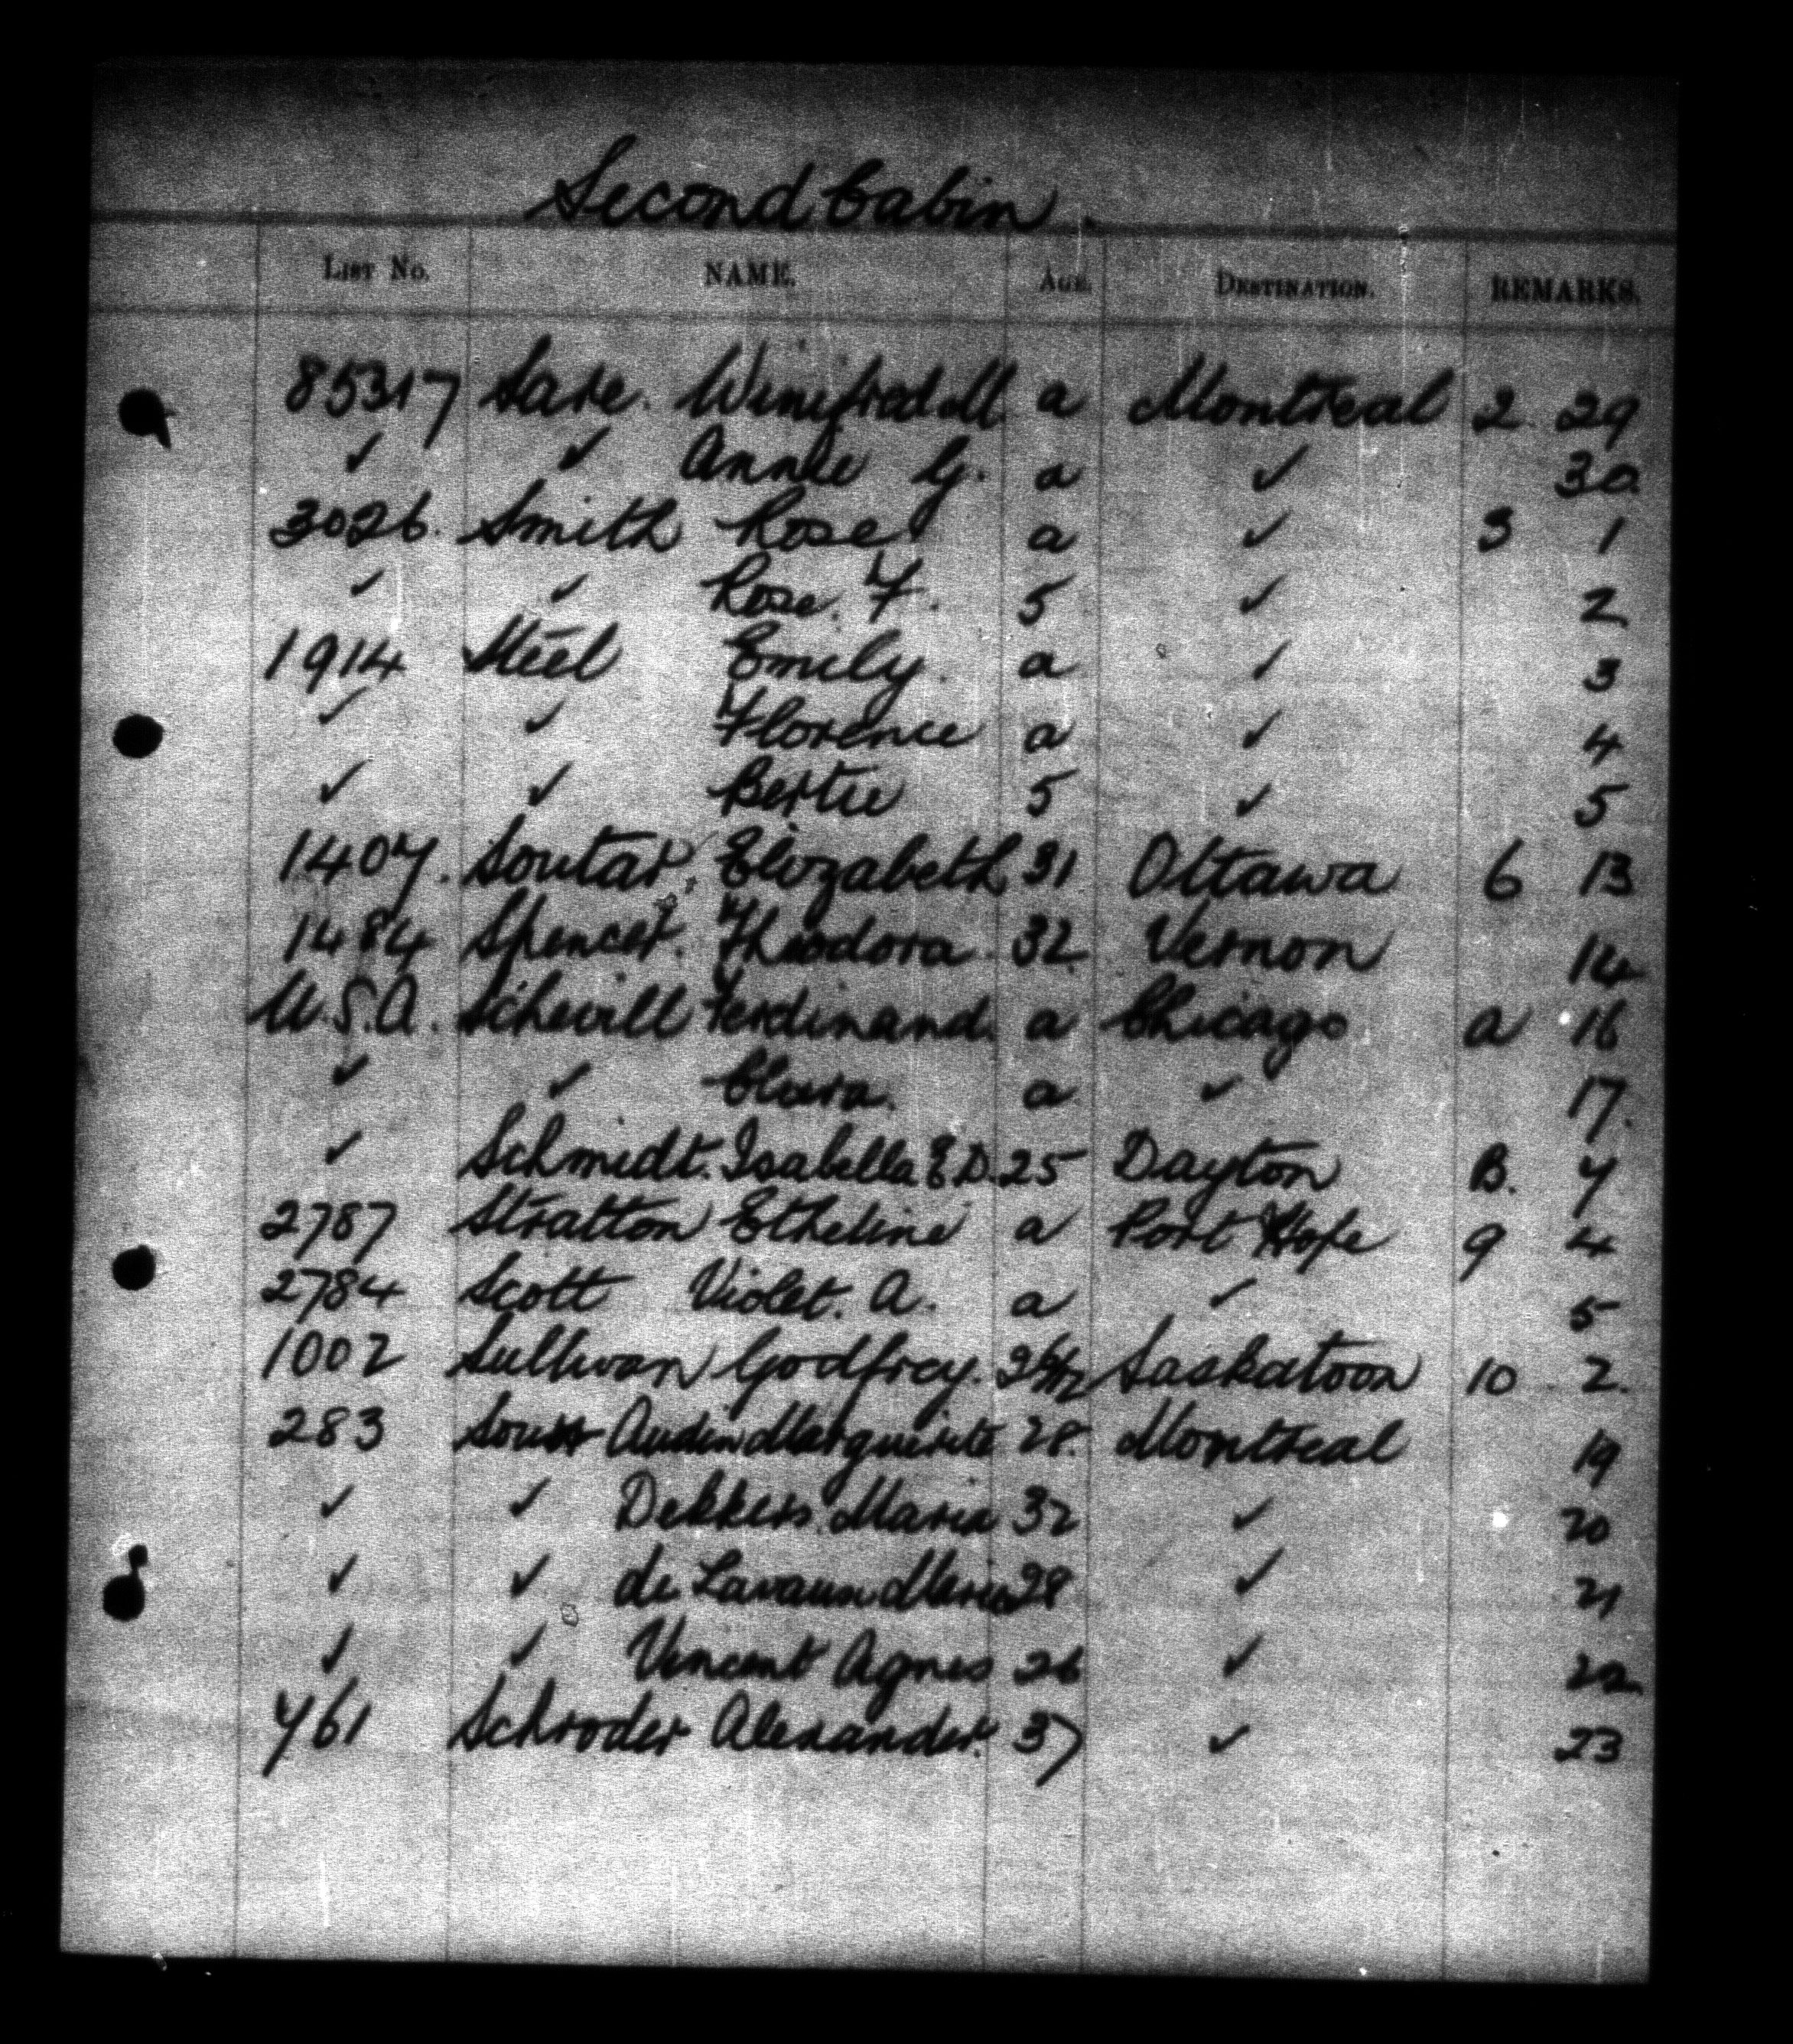 Second Cabin.
LIST No. NAME. AGE. DESTINATION. REMARKS.
85317 Sare. Winifred M. a Montreal 2. 29
✓ ✓ Annie G. a ✓ 30.
3026. Smith Rose a ✓ 3 1
✓ ✓ Rose. F. 5 ✓ 2
1914 Steel Emily. a ✓ 3
✓ ✓ Florence a ✓ 4
✓ ✓ Bertie 5 ✓ 5
1407. Soutar, Elizabeth 31 Ottawa 6 13
1484 Spencer. Theodora 32 Vernon 14
U.S.A. Schevill Ferdinand. a Chicago a 16
✓ ✓ Clara. a ✓ 17.
✓ Schmidt. Isabella E.D. 25 Dayton B. 7
2787 Stratton Etheline a Port Hope 9 4
2784 Scott Violet. A. a ✓ 5
1002 Sullivan Godfrey. Saskatoon 10 2.
283 Audin Marguerite 28. Montreal 19
✓ ✓ Dekkers. Maria 32 ✓ 20
✓ ✓ de Lavaun Maria 28 ✓ 21
✓ ✓ Vincent Agnes 26 ✓ 22.
761 Schroder Alexander. 37 ✓ 23